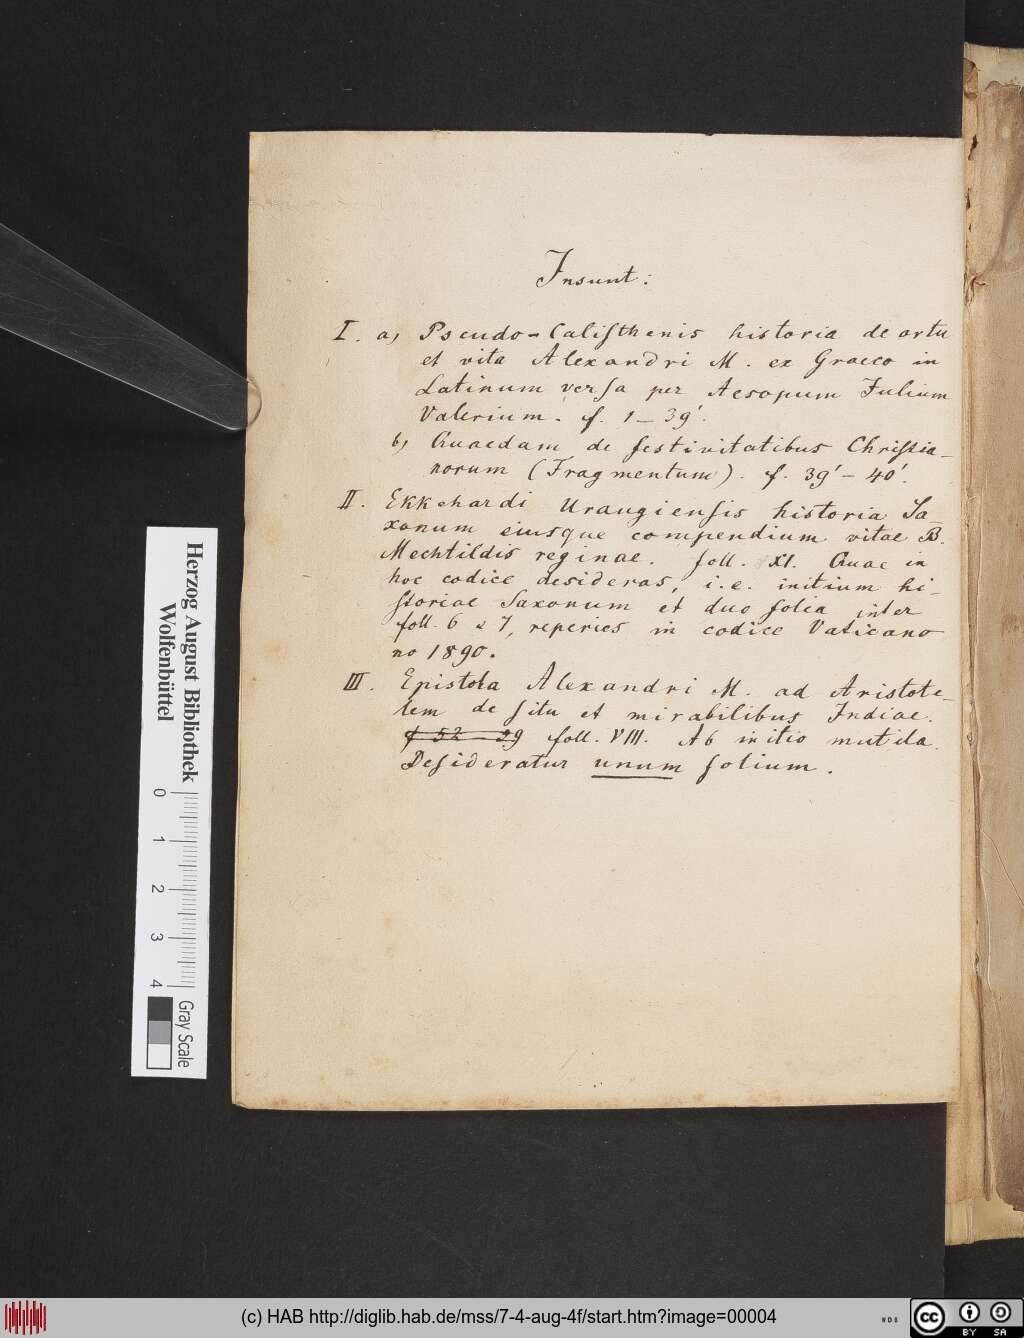 Insunt:
I. a, Pseudo-Calisthenis historia de ortu
et vita Alexandri M. ex Graeco in
Latinum versa per Aesopum Julium
Valerium. f. 1–39'.
b, Quaedam de festivitatibus Christia-
norum (Fragmentum). f. 39'–40'.
II. Ekkehardi Uraugiensis historia Sa-
xonum eiusque compendium vitae B.
Mechtildis reginae. foll. XI. Quae in
hoc codice desideras, i.e. initium hi-
storiae Saxonum et duo folia inter
foll. 6 & 7, reperies in codice Vaticano
no 1890.
III. Epistola Alexandri M. ad Aristote-
lem de situ et mirabilibus Indiae.
f 52 – 59 foll. VIII. Ab initio mutila.
Desideratur unum folium.
Herzog August Bibliothek
Wolfenbüttel
0 1 2 3 4
Gray Scale
(c) HAB http://diglib.hab.de/mss/7-4-aug-4f/start.htm?image=00004
WDB
cc BY SA